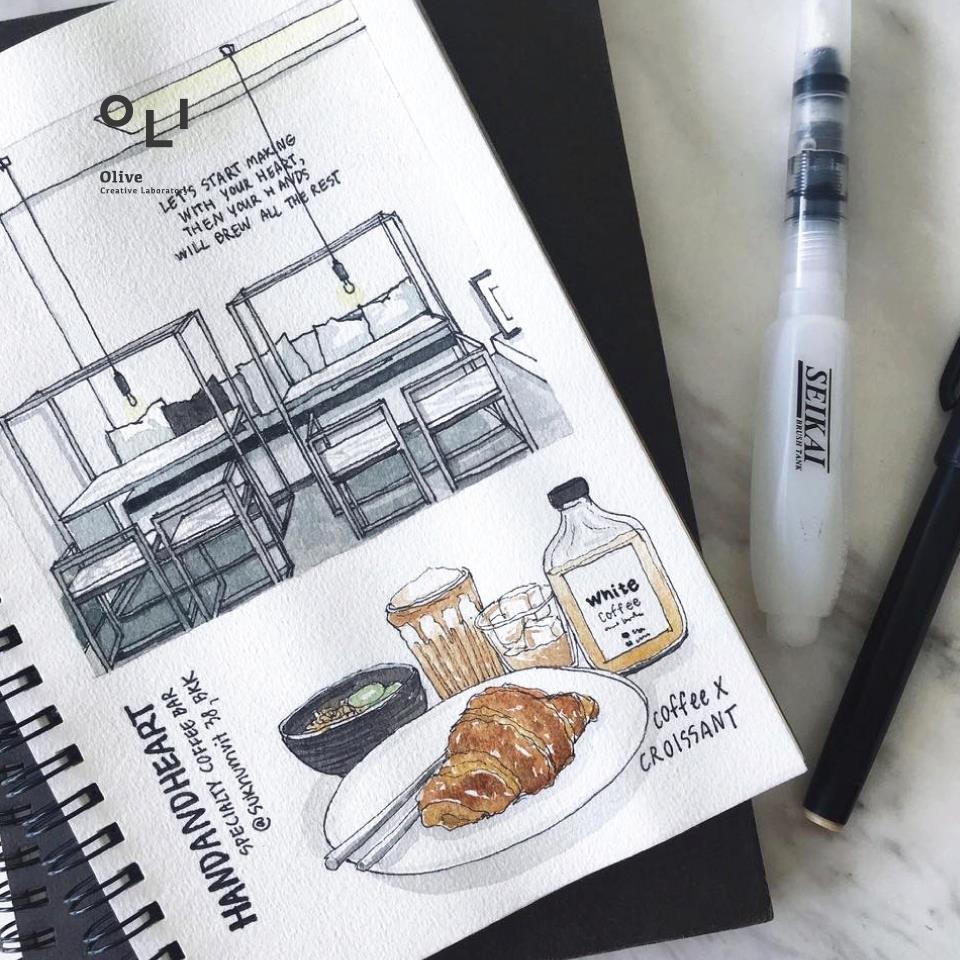 OLI
Olive
Creative Laboratory
LET'S START MAKING
WITH YOUR HEART,
THEN YOUR HANDS
WILL BREW ALL THE REST
SEIKAI
BRUSH TANK
White
Coffee
coffee X
CROISSANT
HANDANDHEART
SPECIALTY COFFEE BAR
@SUKHUMVIT 38, BKK